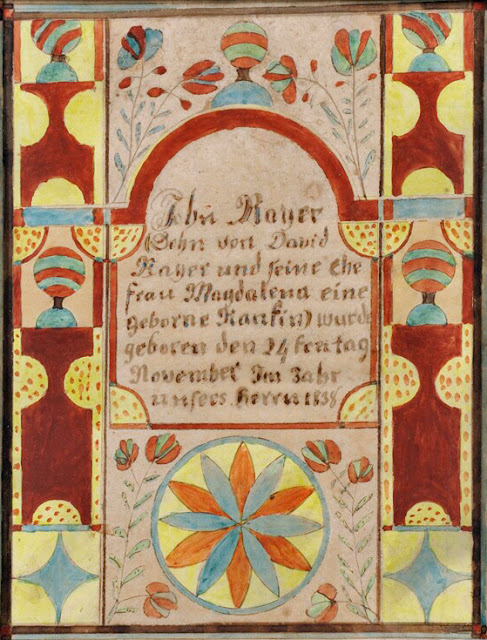 John Mayer
(Sohn von David
Mayer und seine Ehe
frau Magdalena eine
geborne Kaufin) wurde
geboren den 24 freitag
November Im Jahr
unsers Herrn 1838